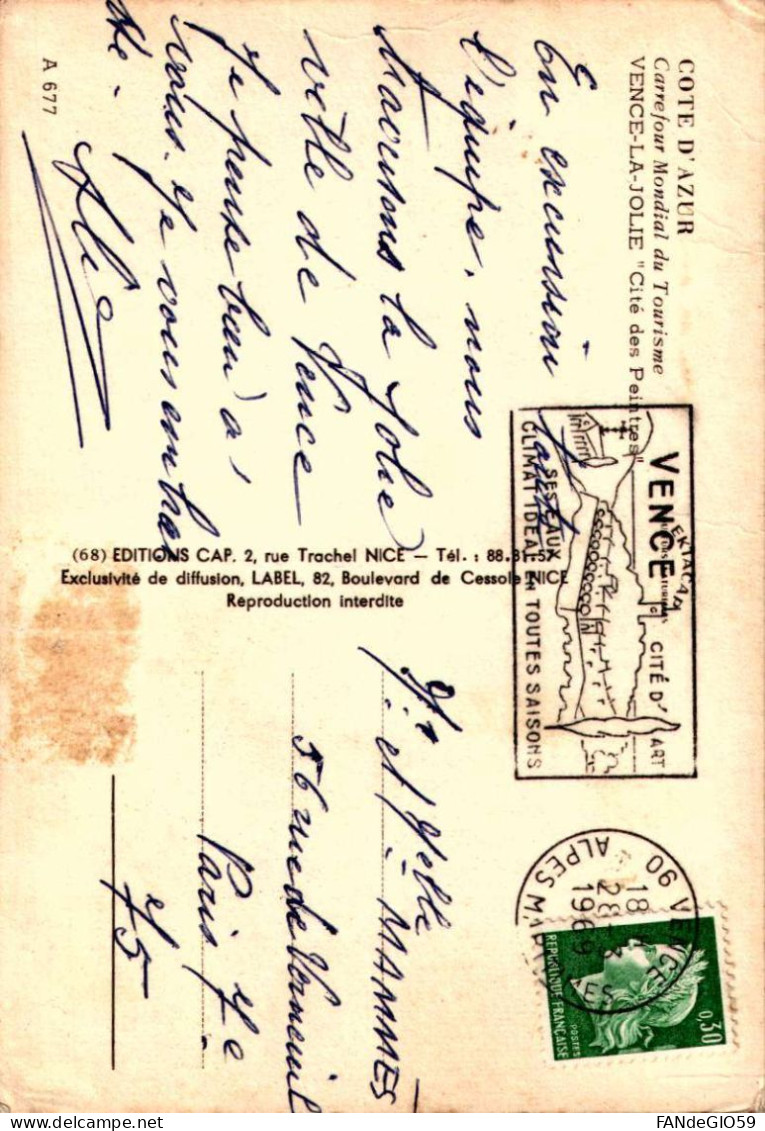 COTE D'AZUR
Carrefour Mondial du Tourisme
VENCE-LA-JOLIE "Cité des Peintres"
En excursion
l'équipe, nous
la Jolie
ville de Vence
Je pense bien à
vous. Je vous embras
A 677
(68) EDITIONS CAP. 2, rue Trachel NICE — Tél. : 88.81-57
Exclusivité de diffusion, LABEL, 82, Boulevard de Cessole NICE
Reproduction interdite
VENCE CITÉ D'ART
SES EAUX
CLIMAT IDEAL EN TOUTES SAISONS
90 VENCE
18 H
28-3
1969
ALPES MARITIMES
REPUBLIQUE FRANÇAISE
POSTES
0,30
Mr et Melle MAMMES
56 rue de Verneuil
Paris 7e
75
FANdeGIO59